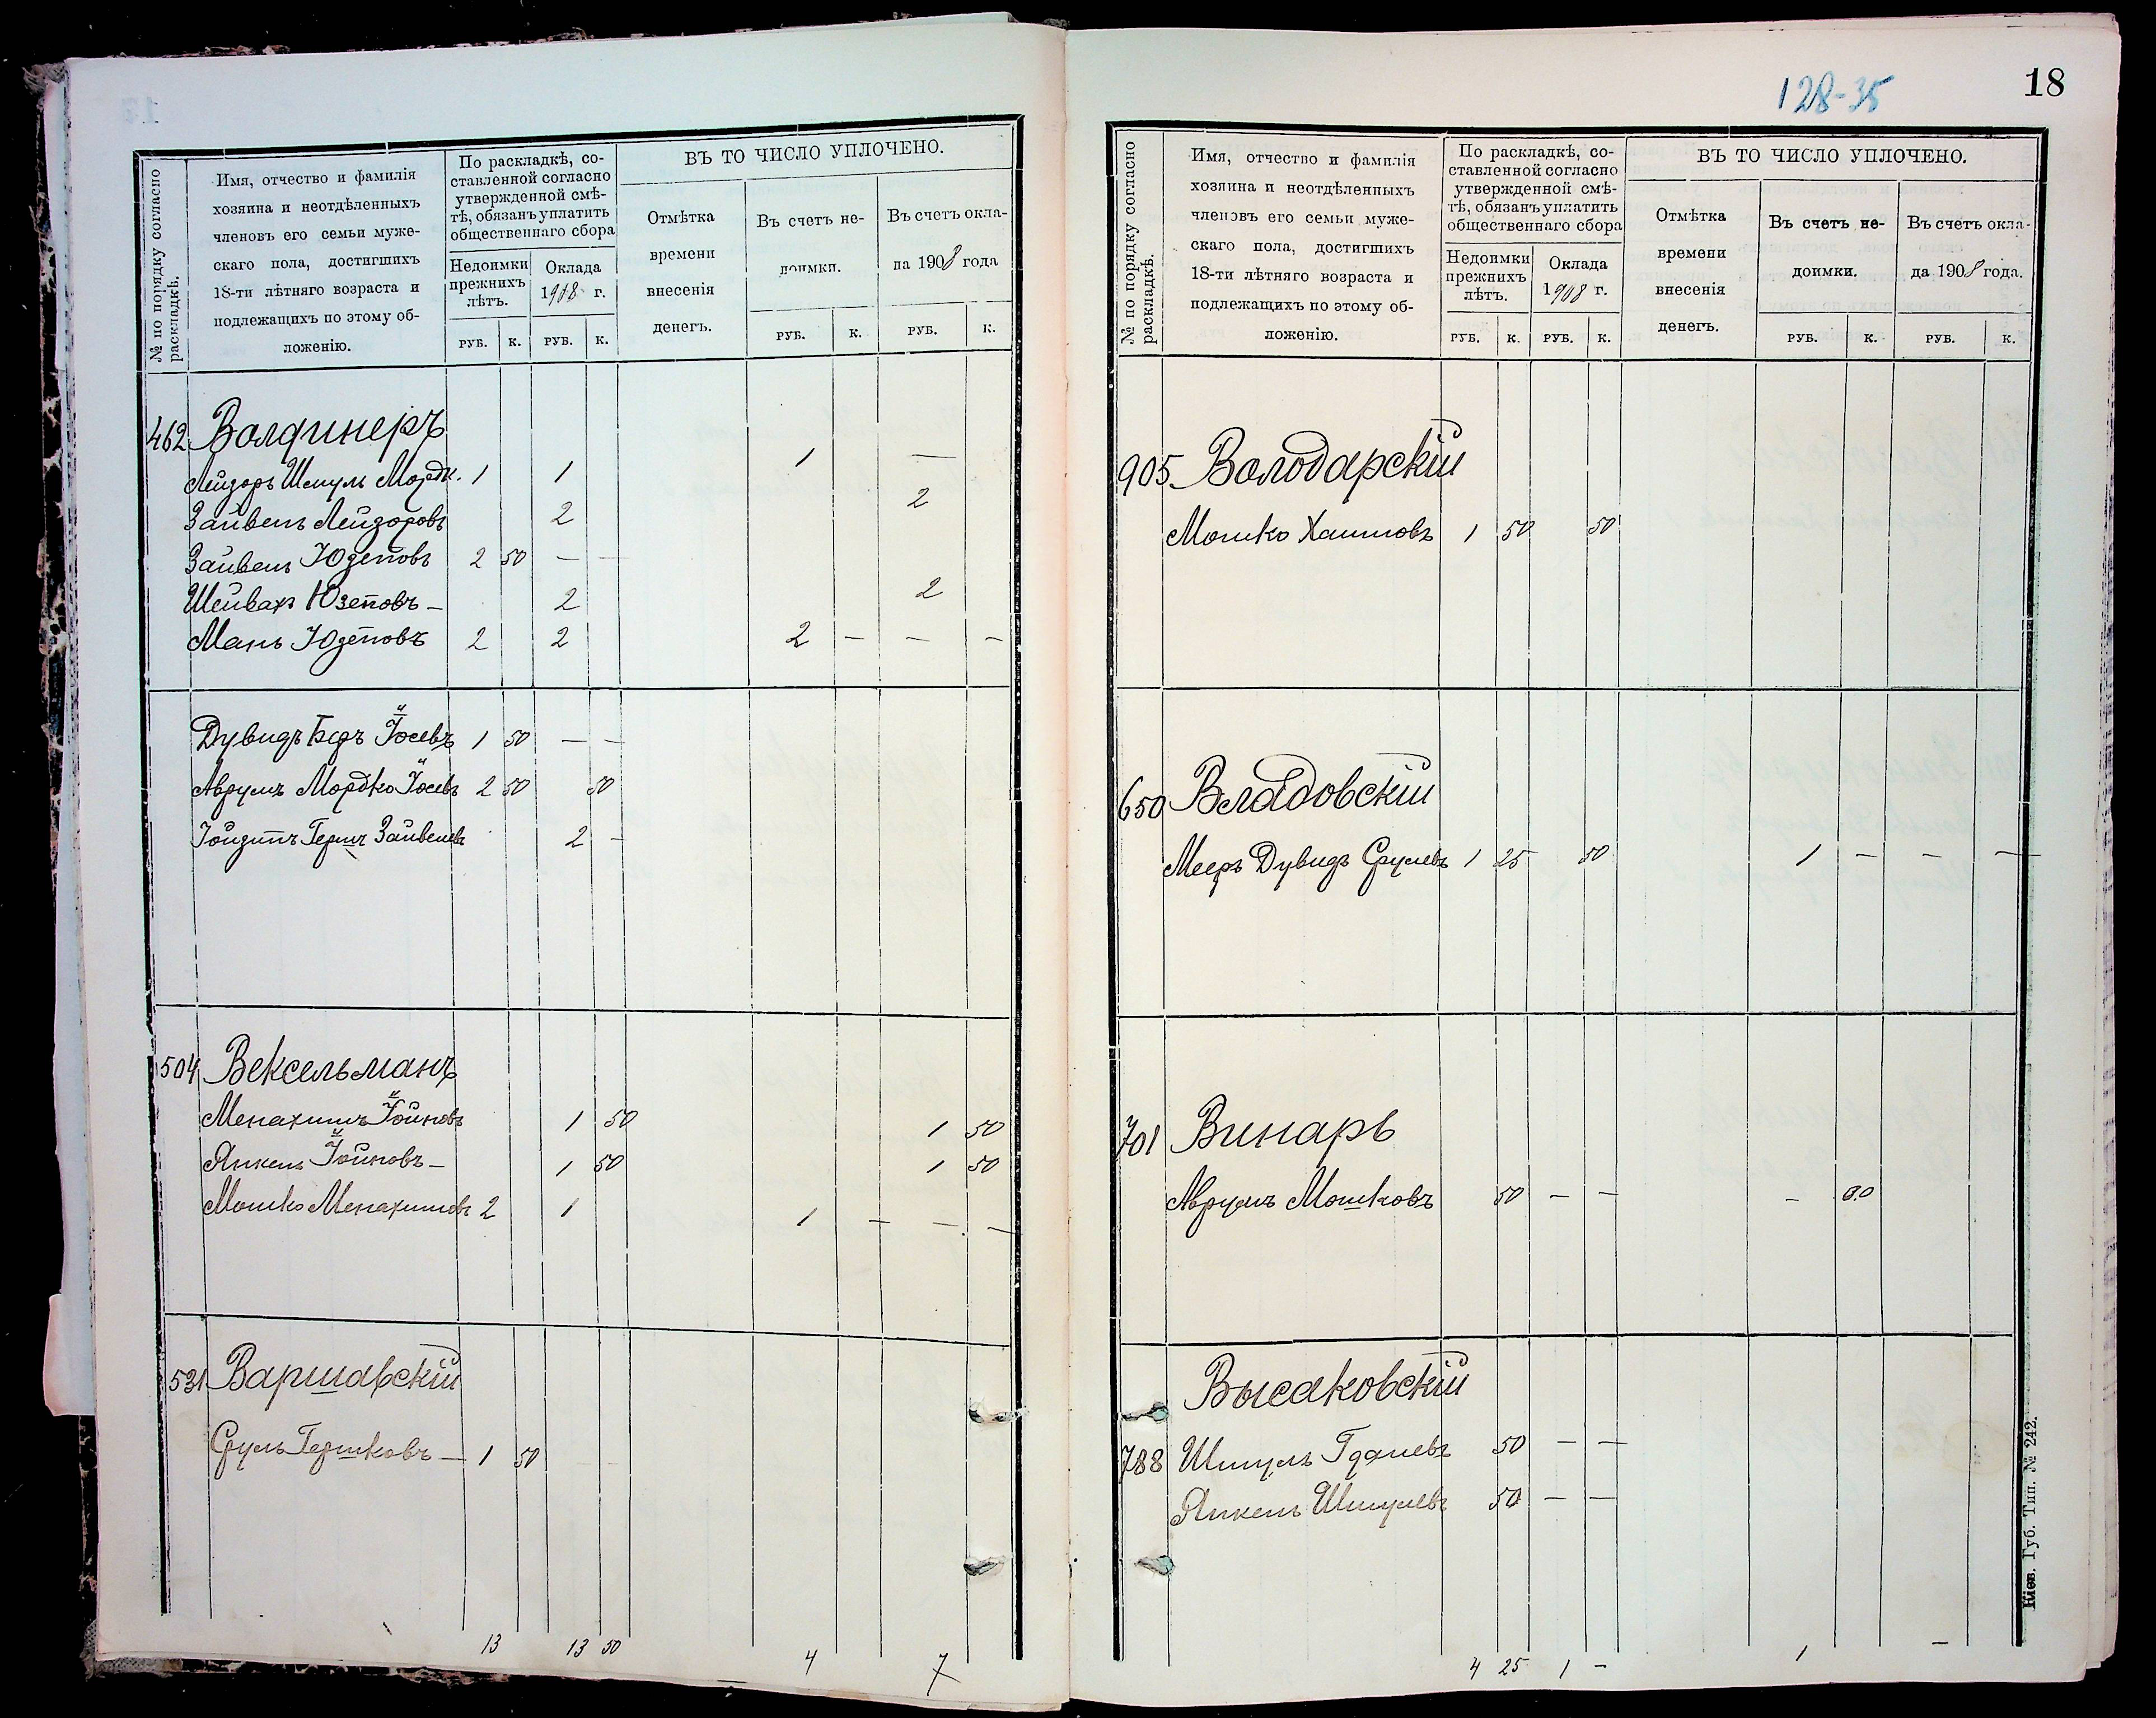 № по порядку согласно раскладкѣ.
Имя, отчество и фамилія
хозяина и неотдѣленныхъ
членовъ его семьи муже-
скаго пола, достигшихъ
18-ти лѣтняго возраста и
подлежащихъ по этому об-
ложенію.
По раскладкѣ, со-
ставленной согласно
утвержденной смѣ-
тѣ, обязанъ уплатить
общественнаго сбора
Недоимки
прежнихъ
лѣтъ.
Оклада
1908 г.
РУБ. К. РУБ. К.
ВЪ ТО ЧИСЛО УПЛОЧЕНО.
Отмѣтка
времени
внесенія
денегъ.
Въ счетъ не-
доимки.
Въ счетъ окла-
да 1908 года
РУБ. К. РУБ. К.
462 Волдинеръ
Лейзоръ Шмуль Мордк. 1 1 1 —
Зайвель Лейзоровъ 2 2
Зайвель Юзеповъ 2 50 — —
Шейвах Юзеповъ — 2 2
Мань Юзеповъ 2 2 2 — — —
Дувидъ Іосевъ 1 50 — —
Аврумъ Мордко Іосевъ 2 50 50
Гершъ Зайвелевъ 2 —
504 Вексельманъ
Менахимъ Іойновъ 1 50 1 50
Янкель Іойновъ — 1 50 1 50
Мошко Менахимовъ 2 1 1 — — —
531 Варшавскій
Сруль Гершковъ — 1 50
13 13 50 4 7
128-35
18
№ по порядку согласно раскладкѣ.
Имя, отчество и фамилія
хозяина и неотдѣленныхъ
членовъ его семьи муже-
скаго пола, достигшихъ
18-ти лѣтняго возраста и
подлежащихъ по этому об-
ложенію.
По раскладкѣ, со-
ставленной согласно
утвержденной смѣ-
тѣ, обязанъ уплатить
общественнаго сбора
Недоимки
прежнихъ
лѣтъ.
Оклада
1908 г.
РУБ. К. РУБ. К.
ВЪ ТО ЧИСЛО УПЛОЧЕНО.
Отмѣтка
времени
внесенія
денегъ.
Въ счетъ не-
доимки.
Въ счетъ окла-
да 1908 года.
РУБ. К. РУБ. К.
905 Володарскій
Мошко Хаимовъ 1 50 50
650 Владовскій
Мееръ Дувидъ Срулевъ 1 25 50 1 — — —
701 Винарь
Аврумъ Мошковъ 50 — — —
Высаковскій
788 Шмуль Гдалевъ 50 — —
Янкель Шмулевъ 50 — —
4 25 1 — 1 —
Кіев. Губ. Тип. № 242.